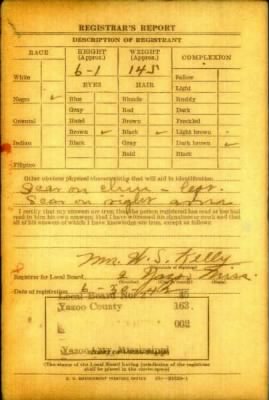 REGISTRAR'S REPORT
DESCRIPTION OF REGISTRANT
RACE HEIGHT (Approx.) WEIGHT (Approx.) COMPLEXION
White 6-1 145 Sallow
EYES HAIR Light
Negro ✓ Blue Blonde Ruddy
Gray Red Dark
Oriental Hazel Brown Freckled
Brown ✓ Black ✓ Light brown
Indian Black Gray Dark brown ✓
Bald Black
Filipino
Other obvious physical characteristics that will aid in identification
Scar on chin - left.
Scar on right arm
I certify that my answers are true; that the person registered has read or has had
read to him his own answers; that I have witnessed his signature or mark and that
all of his answers of which I have knowledge are true, except as follows:
Wm. W. S. Kelly
(Signature of Registrar)
Registrar for Local Board 2 Yazoo Miss.
Date of registration
Local Board No. 2
Yazoo County 163
002
Yazoo City, Mississippi
(The stamp of the Local Board having jurisdiction of the registrant
shall be placed in the above space)